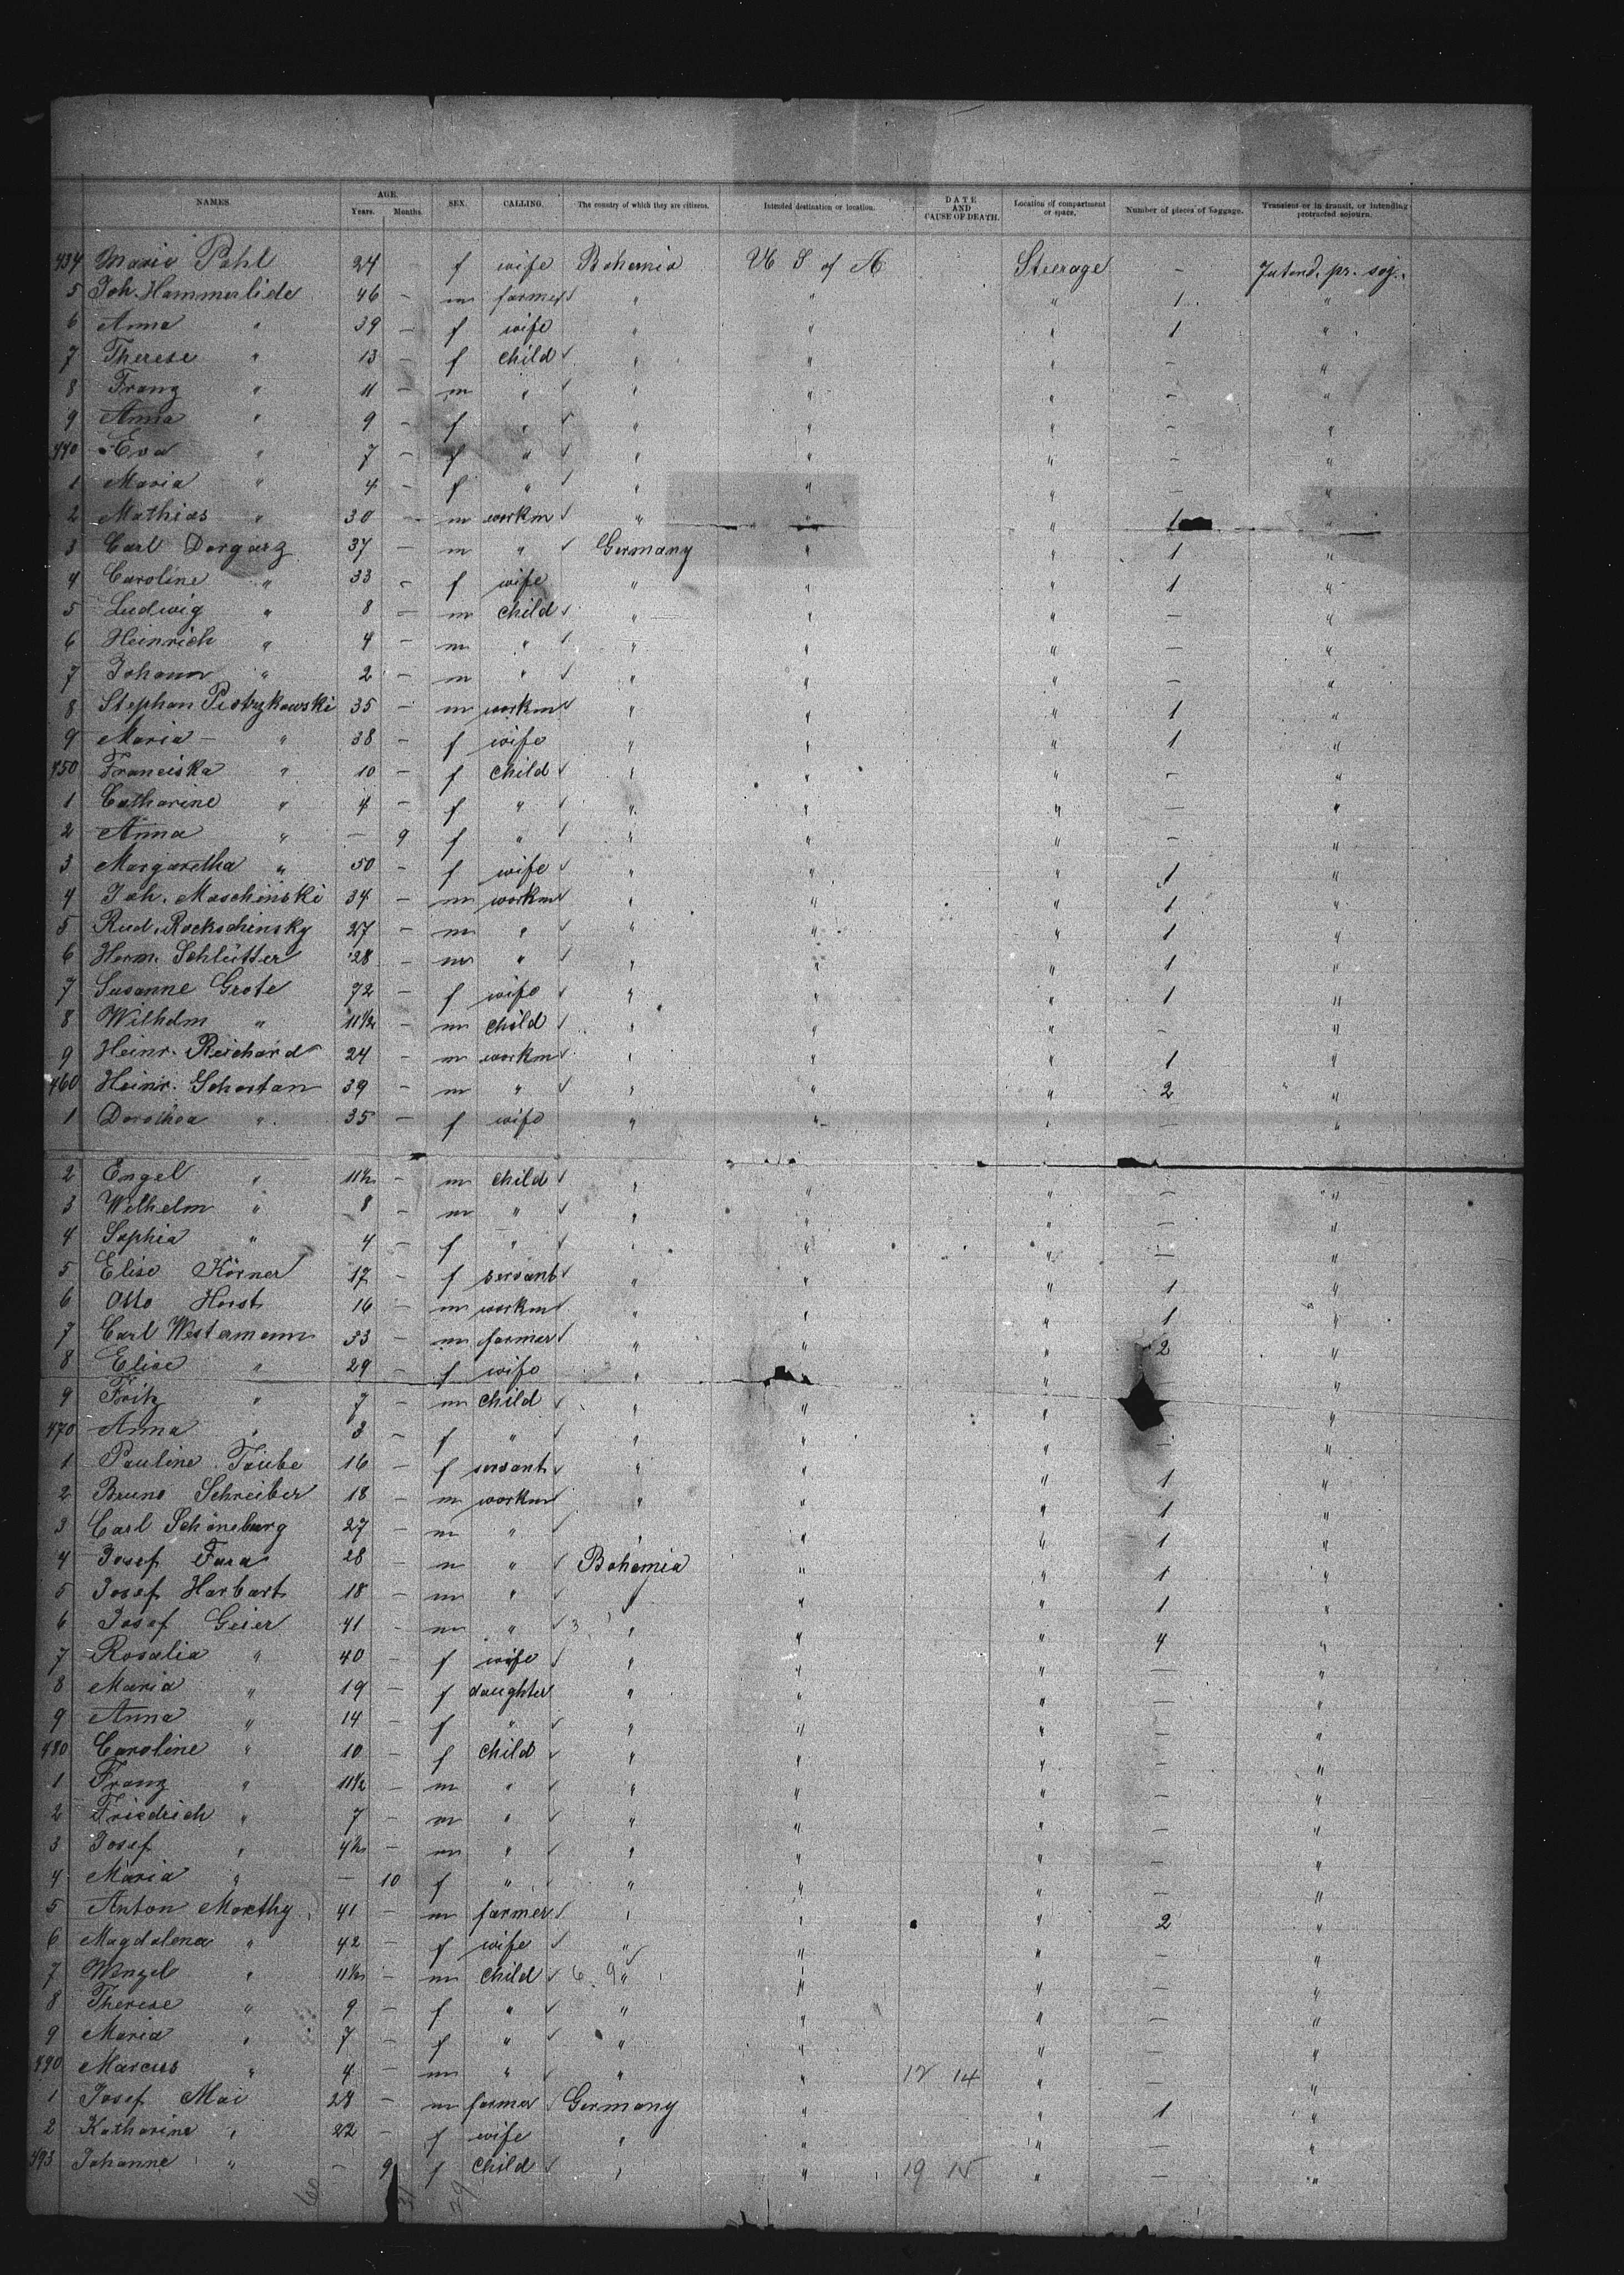 NAMES. AGE. Years. Months. SEX. CALLING. The country of which they are citizens. Intended destination or location. DATE AND CAUSE OF DEATH. Location of compartment or space. Number of pieces of baggage. Transient or in transit, or intending protracted sojourn.
434 Marie Pohl 24 – f wife Bohemia U S of A Steerage – Intend. pr. soj.
5 Joh. Hammerlide 46 – m farmer " " " 1 "
6 Anna " 39 – f wife " " " 1 "
7 Therese " 13 – f child " " " – "
8 Franz " 11 – m " " " " – "
9 Anna " 9 – f " " " " – "
440 Eva " 7 – f " " " " – "
1 Maria " 4 – f " " " " – "
2 Mathias " 30 – m workm " " " 1 "
3 Carl Dorgarz 37 – m " Germany " " 1 "
4 Caroline " 33 – f wife " " " 1 "
5 Ludwig " 8 – m child " " " – "
6 Heinrich " 4 – m " " " " – "
7 Johann " 2 – m " " " " – "
8 Stephan Piotrzkowski 35 – m workm " " " 1 "
9 Maria " 38 – f wife " " " 1 "
450 Franciska " 10 – f child " " " – "
1 Catharine " 4 – f " " " " – "
2 Anna " – 9 f " " " " – "
3 Margaretha " 50 – f wife " " " 1 "
4 Joh. Maschinski 34 – m workm " " " 1 "
5 Rud. Rockschinsky 27 – m " " " " 1 "
6 Herm. Schlütter 28 – m " " " " 1 "
7 Susanne Grote 72 – f wife " " " 1 "
8 Wilhelm " 11½ – m child " " " – "
9 Heinr. Reichard 24 – m workm " " " 1 "
460 Heinr. Schortan 39 – m " " " " 2 "
1 Dorothea " 35 – f wife " " " – "
2 Engel " 11½ – m child " " " – "
3 Wilhelm " 8 – m " " " " – "
4 Sophia " 4 – f " " " " – "
5 Elise Körner 17 – f servant " " " 1 "
6 Otto Horst 16 – m workm " " " 1 "
7 Carl Westermann 33 – m farmer " " " 2 "
8 Elise " 29 – f wife " " " "
9 Fritz " 7 – m child " " " "
470 Anna " 3 – f " " " " – "
1 Pauline Taube 16 – f servant " " " 1 "
2 Bruno Schreiber 18 – m workm " " " 1 "
3 Carl Schöneburg 27 – m " " " " 1 "
4 Josef Fara 28 – m " Bohemia " " 1 "
5 Josef Harbart 18 – m " " " " 1 "
6 Josef Geier 41 – m " " " " 4 "
7 Rosalia " 40 – f wife " " " – "
8 Maria " 19 – f daughter " " " – "
9 Anna " 14 – f " " " " – "
480 Caroline " 10 – f child " " " – "
1 Franz " 11½ – m " " " " – "
2 Friedrich " 7 – m " " " " – "
3 Josef " 4½ – m " " " " – "
4 Maria " – 10 f " " " " – "
5 Anton Morthy 41 – m farmer " " " 2 "
6 Magdalena " 42 – f wife " " " – "
7 Wenzel " 11½ – m child 6 9 " " " – "
8 Therese " 9 – f " " " " – "
9 Maria " 7 – f " " " " – "
490 Marcus " 4 – m " " " 12 14 " – "
1 Josef Mai 28 – m farmer Germany " " 1 "
2 Katharine " 22 – f wife " " " – "
493 Johanne " – 9 f child " " 19 15 " – "